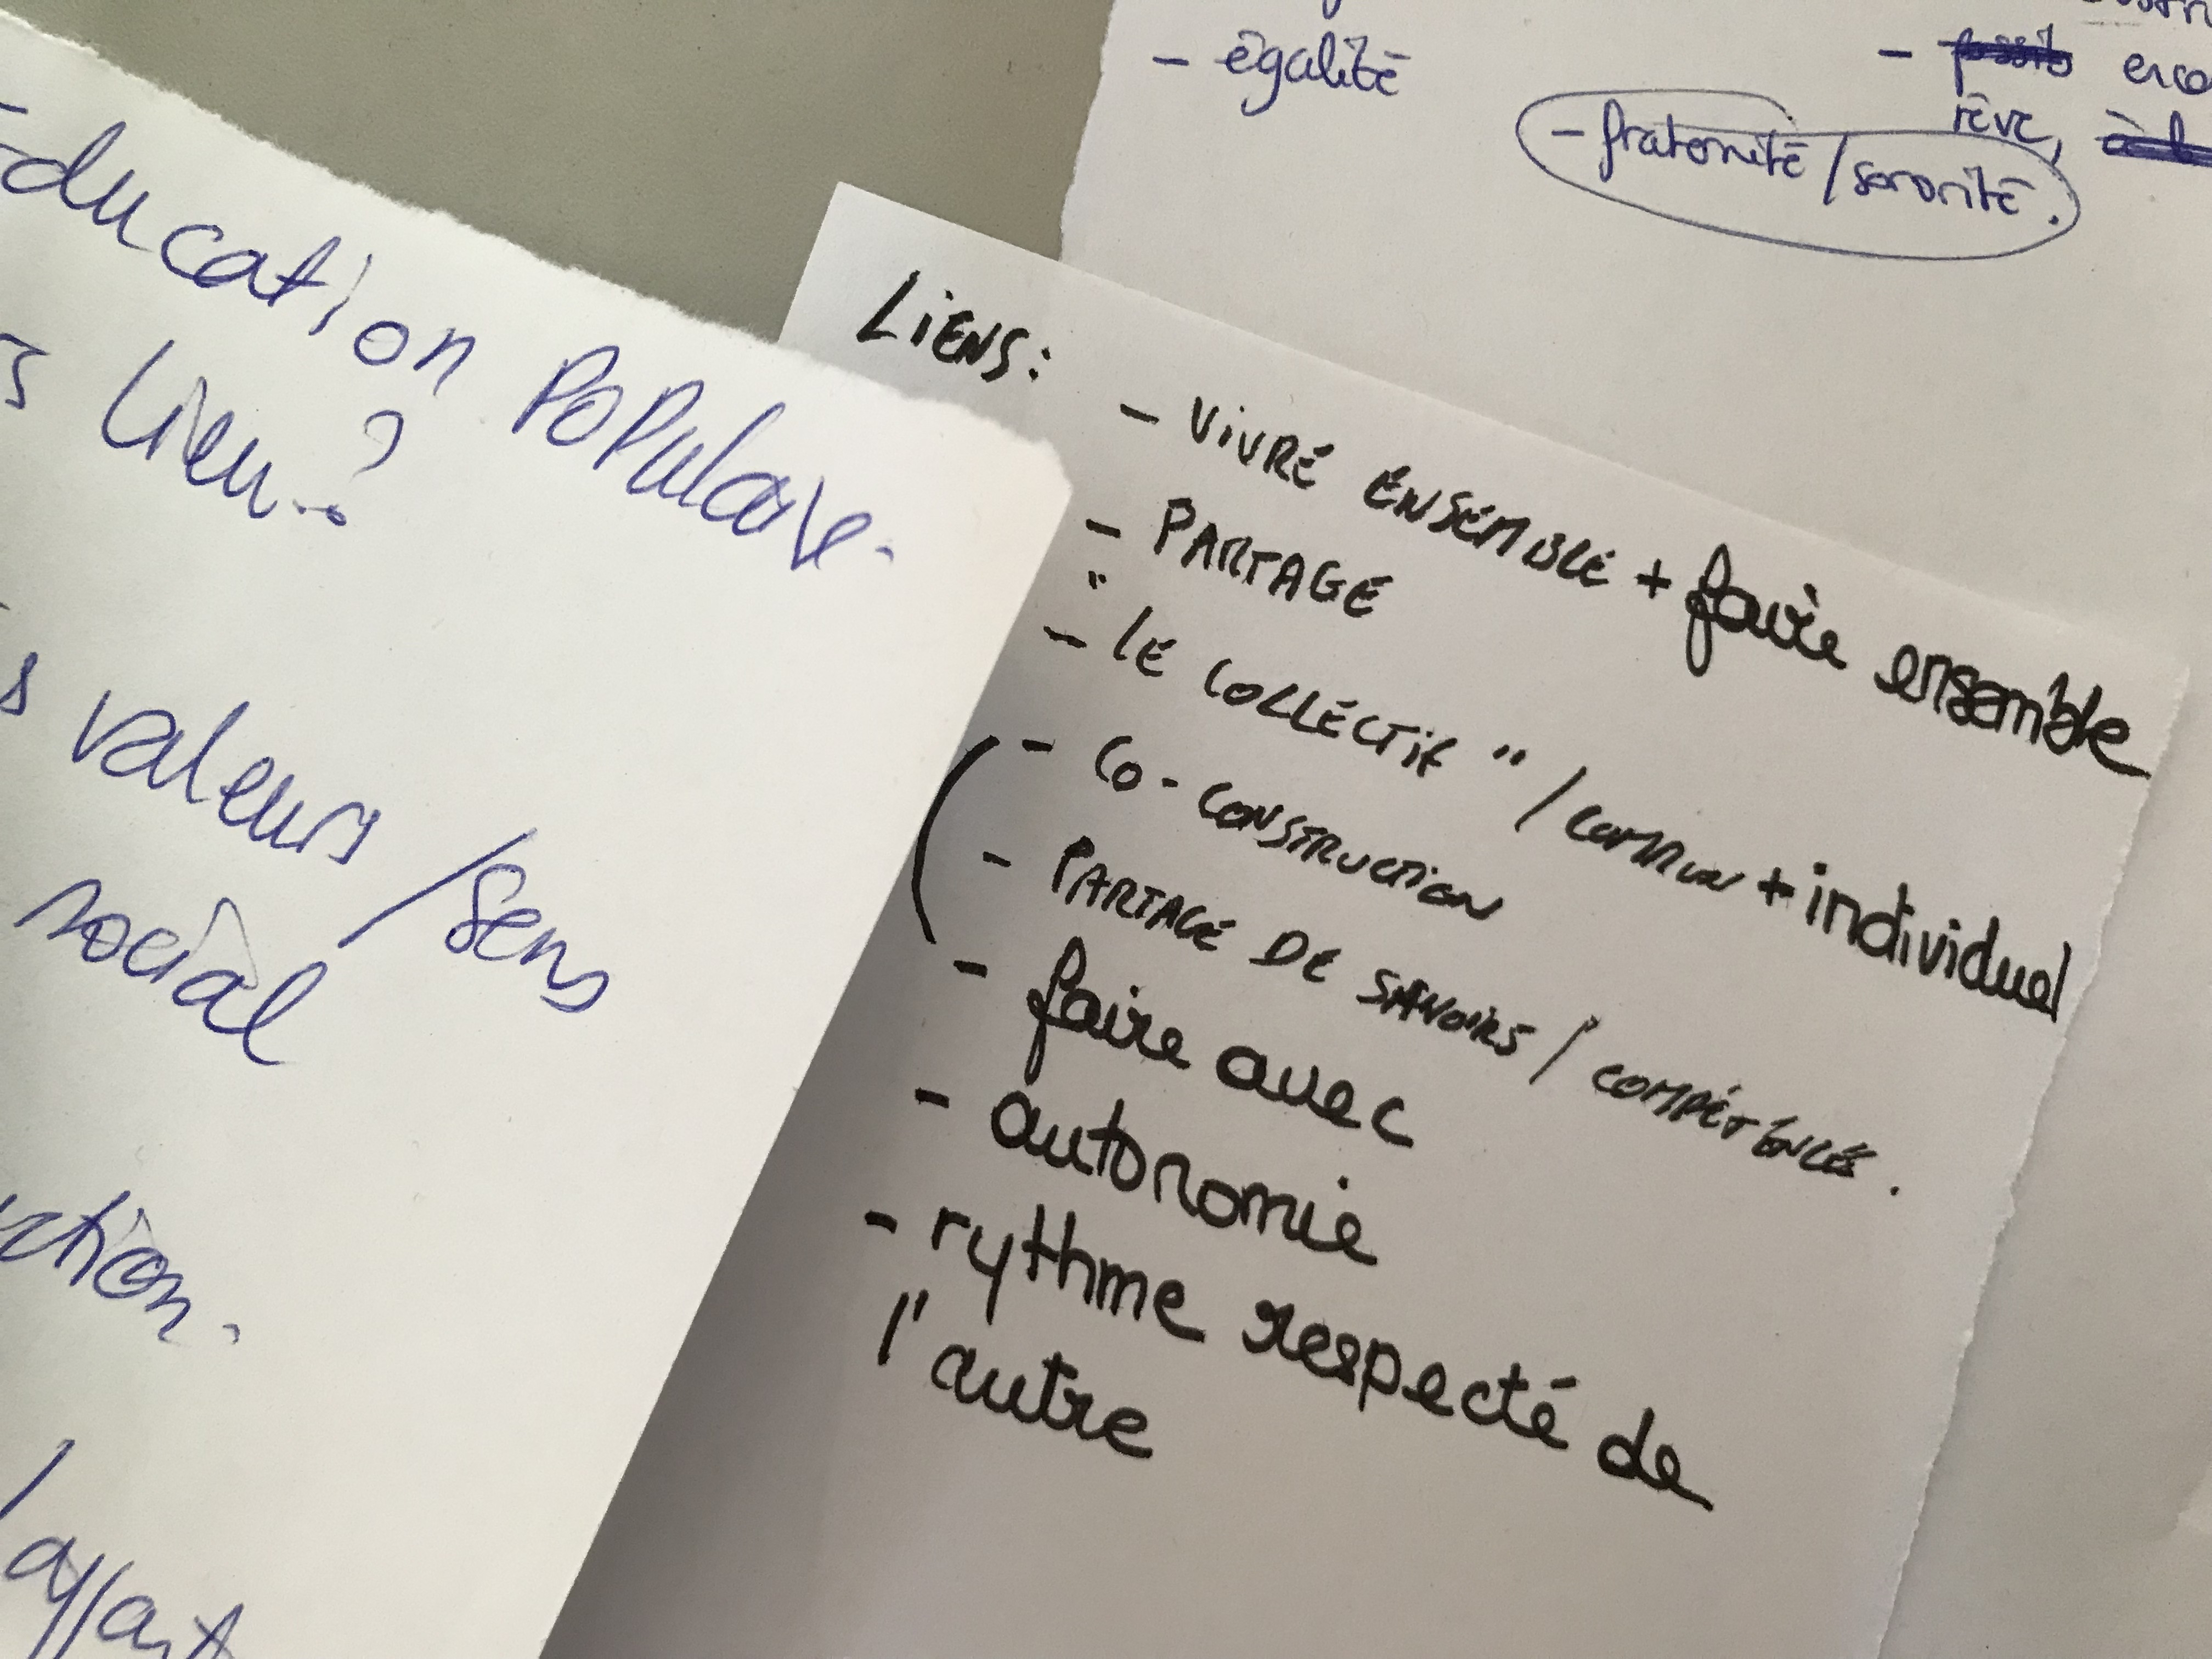 Education Populaire.
Lien..?
valeurs / sens
social
- égalité
- fraternité / sororité.
rêve,
LiENS:
- ViVRE ENSEMBLE + faire ensemble
- PARTAGE
- "LE COLLECTiF" / COMMUN + individuel
- CO-CONSTRUCTION
- PARTAGE DE SAVOiRS / COMPÉTENCES.
- faire avec
- autonomie
- rythme respecté de
l'autre